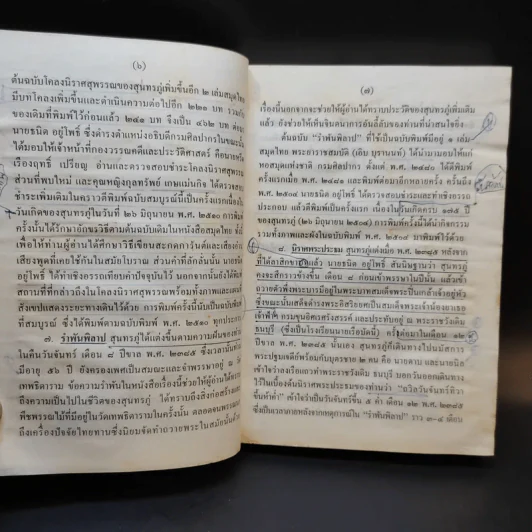 (๖)
ต้นฉบับโคลงนิราศสุพรรณของสุนทรภู่เพิ่มขึ้นอีก ๒ เล่มสมุดไทย
มีบทโคลงเพิ่มขึ้นและดำเนินความต่อไปอีก ๒๒๑ บท รวมกับ
ของเดิมที่พิมพ์ไว้ก่อนแล้ว ๒๔๑ บท จึงเป็น ๔๖๒ บท
นายธนิต อยู่โพธิ์ ซึ่งดำรงตำแหน่งอธิบดีกรมศิลปากรในขณะนั้น
ได้มอบให้เจ้าหน้าที่กองวรรณคดีและประวัติศาสตร์ คือนายหรีด
เรืองฤทธิ์ เปรียญ อ่านและตรวจสอบชำระโคลงนิราศสุพรรณ
ส่วนที่พบใหม่ และคุณหญิงกุลทรัพย์ เกษแม่นกิจ ได้ตรวจสอบ
ชำระเพิ่มเติมในคราวตีพิมพ์ฉบับสมบูรณ์ที่เป็นครั้งแรกเนื่องใน
วันเกิดของสุนทรภู่ในวันที่ ๒๖ มิถุนายน พ.ศ. ๒๕๑๐ การพิมพ์
ครั้งนั้นได้รักษาอักขรวิธีตามต้นฉบับเดิมในหนังสือสมุดไทย ทั้งนี้
เพื่อให้ท่านผู้อ่านได้ศึกษาวิธีเขียนสะกดการันต์และเสียงอ่าน
เสียงพูดที่เคยใช้กันในสมัยโบราณ ส่วนคำที่ลักลั่นนั้น นายธนิต
อยู่โพธิ์ ได้ทำเชิงอรรถเทียบคำปัจจุบันไว้ นอกจากนั้นยังได้พิมพ์
สถานที่ที่กล่าวถึงในโคลงนิราศสุพรรณพร้อมทั้งภาพและแผนผัง
สังเขปแสดงระยะทางเดินไว้ด้วย การพิมพ์ครั้งนี้นับเป็นฉบับพิมพ์
ที่สมบูรณ์ ซึ่งได้พิมพ์ตามฉบับพิมพ์ พ.ศ. ๒๕๑๐ ทุกประการ
๗. รำพันพิลาป สุนทรภู่ได้แต่งขึ้นตามความฝันของท่าน
ในคืนวันจันทร์ เดือน ๘ ปีขาล พ.ศ. ๒๓๘๕ ซึ่งเวลานั้นท่าน
มีอายุ ๕๖ ปี ยังครองเพศเป็นสมณะและจำพรรษาอยู่ ณ วัด
เทพธิดาราม ข้อความรำพันในหนังสือเรื่องนี้ช่วยให้ผู้อ่านได้ทราบ
ถึงความเป็นไปในชีวิตของสุนทรภู่ ได้ทราบถึงสิ่งก่อสร้างและ
พืชพรรณไม้ที่มีอยู่ในวัดเทพธิดารามในครั้งนั้น ตลอดจน
ถึงเครื่องปัจจัยไทยทานซึ่งนิยมจัดทำถวายพระในสมัยนั้นด้วย
(๗)
เรื่องนี้นอกจากจะช่วยให้ผู้อ่านได้ทราบประวัติของสุนทรภู่เพิ่มเติม
แล้ว ยังช่วยให้เห็นจินตนาการอันลี้ลับของท่านที่น่าสนใจยิ่ง
ต้นฉบับ “รำพันพิลาป” ที่ใช้เป็นฉบับพิมพ์มีอยู่ ๑ เล่ม
สมุดไทย พระยาราชสมบัติ (เอิบ บุรานนท์) ได้นำมามอบให้แก่
หอสมุดแห่งชาติ กรมศิลปากร ตั้งแต่ พ.ศ. ๒๔๘๐ ได้ตีพิมพ์
ครั้งแรกเมื่อ พ.ศ. ๒๔๘๑ และพิมพ์ต่อมาอีกหลายครั้ง ครั้นถึง
พ.ศ. ๒๕๐๔ นายธนิต อยู่โพธิ์ ได้ตรวจสอบชำระและทำเชิงอรรถ
ประกอบ แล้วตีพิมพ์เป็นครั้งแรก เนื่องในวันเกิดครบ ๑๗๕ ปี
ของสุนทรภู่ (๒๖ มิถุนายน ๒๕๐๔) การพิมพ์ครั้งนี้ได้นำกิจกรรม
รวมทั้งภาพและผังในฉบับพิมพ์ พ.ศ. ๒๕๐๔ มาพิมพ์ไว้ด้วย
๘. นิราศพระประธม สุนทรภู่แต่งเมื่อ พ.ศ. ๒๓๘๕ หลังจาก
ที่ได้ลาสิกขาบทแล้ว นายธนิต อยู่โพธิ์ สันนิษฐานว่า สุนทรภู่
คงจะสึกราวข้างขึ้น เดือน ๘ ก่อนเข้าพรรษาในปีนั้น แล้วเข้า
ถวายตัวพึ่งพระบารมีอยู่ในพระบาทสมเด็จพระปิ่นเกล้าเจ้าอยู่หัว
ซึ่งขณะนั้นเสด็จดำรงพระอิสริยยศเป็นสมเด็จพระเจ้าน้องยาเธอ
เจ้าฟ้าฯ กรมขุนอิศเรศรังสรรค์ และประทับอยู่ ณ พระราชวังเดิม
ธนบุรี (ซึ่งเป็นโรงเรียนนายเรือบัดนี้) ครั้นต่อมาในเดือน ๑๒
พ.ศ. ๒๓๘๕ นั้นเอง สุนทรภู่ก็เดินทางไปนมัสการ
พระปฐมเจดีย์พร้อมกับบุตรชาย ๒ คน คือ นายตาบ และนายนิล
เข้าใจว่าลงเรือแถวท่าพระราชวังเดิม ธนบุรี บอกวันออกเดินทาง
ไว้ในเบื้องต้นนิราศพระประธมของท่านว่า “ถวิลวันจันทร์ทิวา
ขึ้นห้าค่ำ” เข้าใจว่าเป็นวันจันทร์ขึ้น ๕ ค่ำ เดือน ๑๒ พ.ศ. ๒๓๘๕
ซึ่งเป็นเวลาภายหลังจากเหตุการณ์ใน “รำพันพิลาป” ราว ๓-๔ เดือน